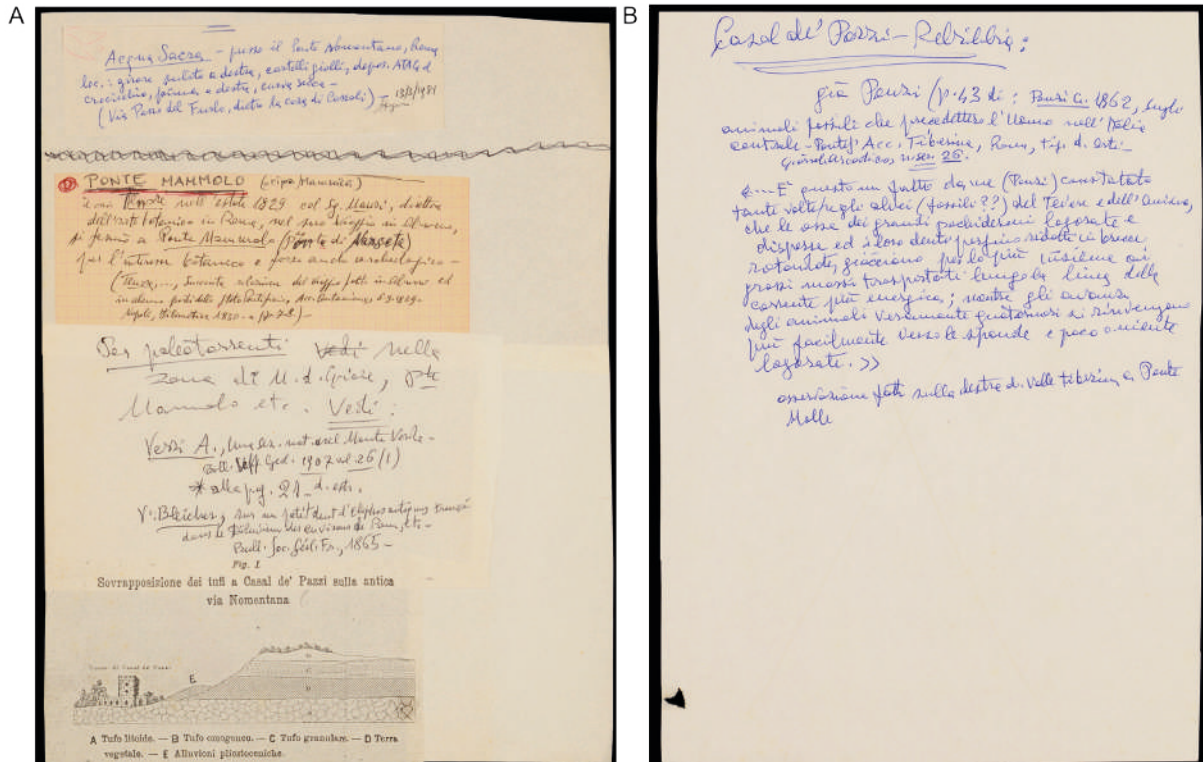 A
Acqua Sacra - presso il Ponte Nomentano, Roma
loc.: girare subito a destra, cartelli gialli, depos. ATAC
crocicchio, poi a destra,
(Via Passo del Furlo, dietro la casa di Cassoli) - 13/3/1981
PONTE MAMMOLO (ripa Mammea)
nell'estate 1829 col Sig. Mauri, direttore
dell'orto botanico in Roma, nel suo viaggio in Abruzzo,
si fermò a Ponte Mammolo (Ponte di Mammea)
per l'interesse botanico e forse anche archeologico -
succinta relazione del viaggio fatto in Abruzzo ed
in alcune parti dello Stato Pontificio,
Napoli, 1830 -
Per paleotorrenti vedi nella
zona di M. d. Gioie, Pte
Mammolo etc. Vedi:
Verri A., nat. del Monte Verde -
1907 vol. 26 (1)
alla pg. 21 d. estr.
V. Bleicher, sur un
dans le des environs de Rome, etc -
Bull. Soc. Géol. Fr., 1865 -
Fig. I
Sovrapposizione dei tufi a Casal de' Pazzi sulla antica
via Nomentana
Torre di Casal de' Pazzi
E
D
C
B
A
A Tufo litoide. — B Tufo omogeneo. — C Tufo granulare. — D Terra
vegetale. — E Alluvioni plioceniche.
B
Casal de' Pazzi - Rebibbia:
già Ponzi (p. 43 di: Ponzi G. 1862, sugli
animali fossili che precedettero l'Uomo nell'Italia
centrale - Pontif. Acc. Tiberina, Roma, tip. d. arti -
26.
<<... E questo un fatto da me (Ponzi) constatato
tante volte negli alvei (fossili??) del Tevere e dell'Aniene,
che le ossa dei grandi pachidermi logorate e
disperse ed i loro denti perfino ridotti in brecce
rotondate, giacciono per lo più insieme ai
grossi massi trasportati lungo la linea della
corrente più energica; mentre gli avanzi
degli animali veramente quaternari si rinvengono
più facilmente verso le sponde e poco o niente
logorate. >>
osservazione fatta sulla destra d. valle tiberina a Ponte
Molle